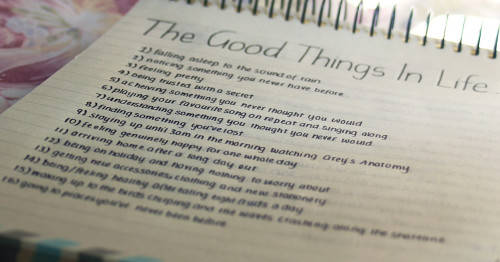 The Good Things In Life
1) falling asleep to the sound of rain
2) noticing something you never have before
3) feeling pretty
4) being trusted with a secret
5) achieving something you never thought you would
6) playing your favourite song on repeat and singing along
7) understanding something you thought you never would
8) finding something you've lost
9) staying up until 3am in the morning watching Grey's Anatomy
10) feeling genuinely happy for one whole day
11) arriving home after a long day out
12) being on holiday and having nothing to worry about
13) getting new accessories, clothing and new stationery
14) being/feeling healthy after eating right fruits a day
15) waking up to the birds chirping and the waves crashing along the shoreline
16) going to places you've never been before